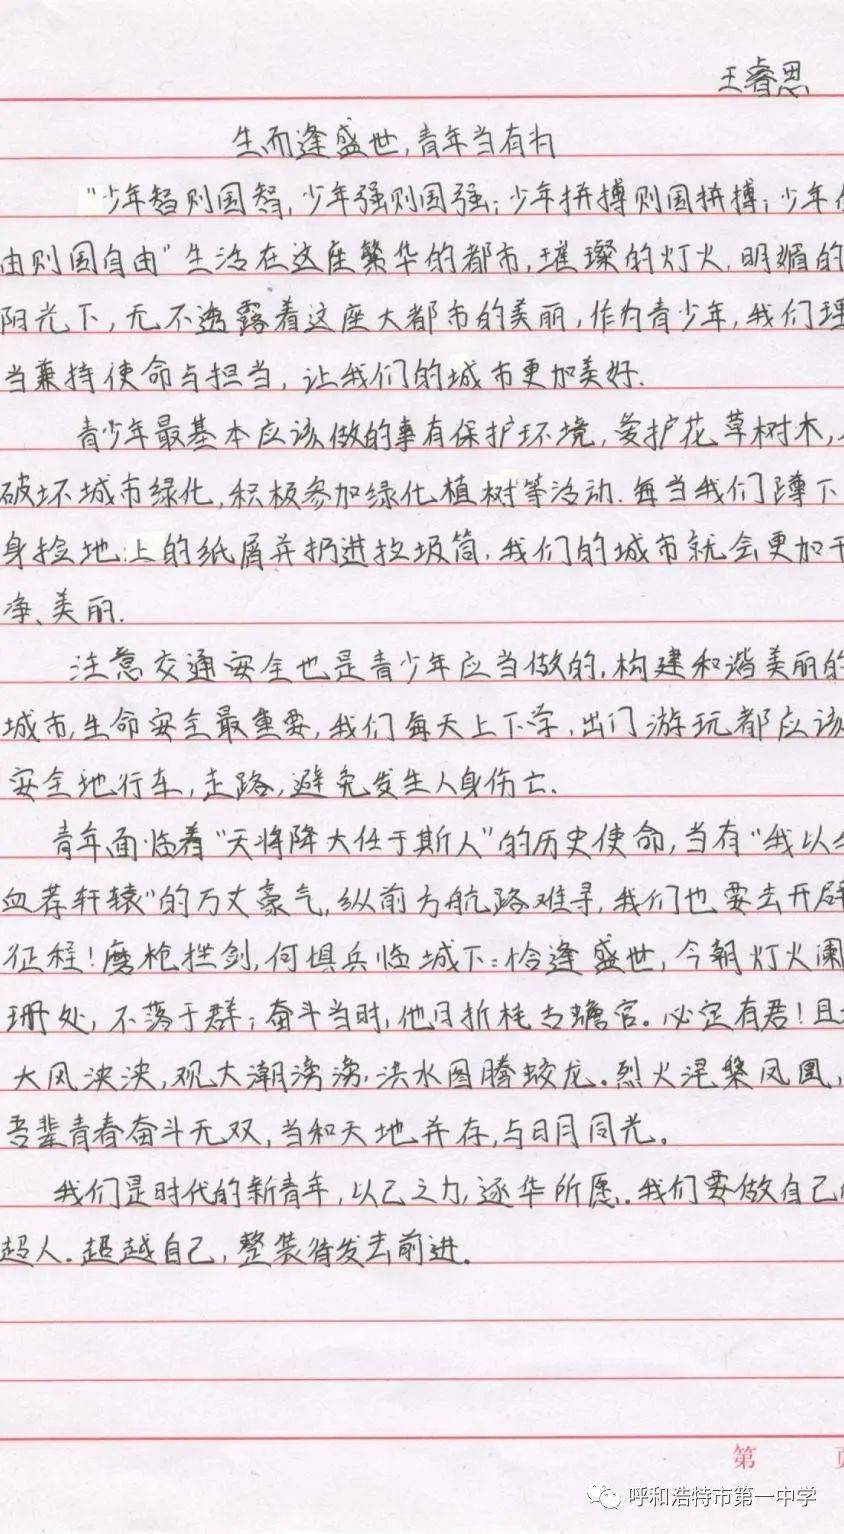 王睿思
生而逢盛世,青年当有为
"少年智则国智,少年强则国强;少年拼搏则国拼搏;少年
由则国自由"生活在这座繁华的都市,璀璨的灯火,明媚的
阳光下,无不透露着这座大都市的美丽,作为青少年,我们理
当兼持使命与担当,让我们的城市更加美好.
青少年最基本应该做的事有保护环境,爱护花草树木,
破坏城市绿化,积极参加绿化植树等活动.每当我们蹲下
身捡地上的纸屑并扔进垃圾筒,我们的城市就会更加干
净、美丽.
注意交通安全也是青少年应当做的,构建和谐美丽的
城市,生命安全最重要,我们每天上下学,出门游玩都应该
安全地行车,走路,避免发生人身伤亡.
青年面临着"天将降大任于斯人"的历史使命,当有"我以
血荐轩辕"的万丈豪气,纵前方航路难寻,我们也要去开辟
征程!磨枪挫剑,何惧兵临城下:恰逢盛世,今朝灯火阑
珊处,不落于群;奋斗当时,他日折桂古蟾宫。必定有君!且
大风泱泱,观大潮滂滂,洪水图腾蛟龙。烈火涅槃凤凰,
吾辈青春奋斗无双,当和天地并存,与日月同光。
我们是时代的新青年,以己之力,逐华所愿.我们要做自己
超人.超越自己,整装待发去前进。
第 页
呼和浩特市第一中学